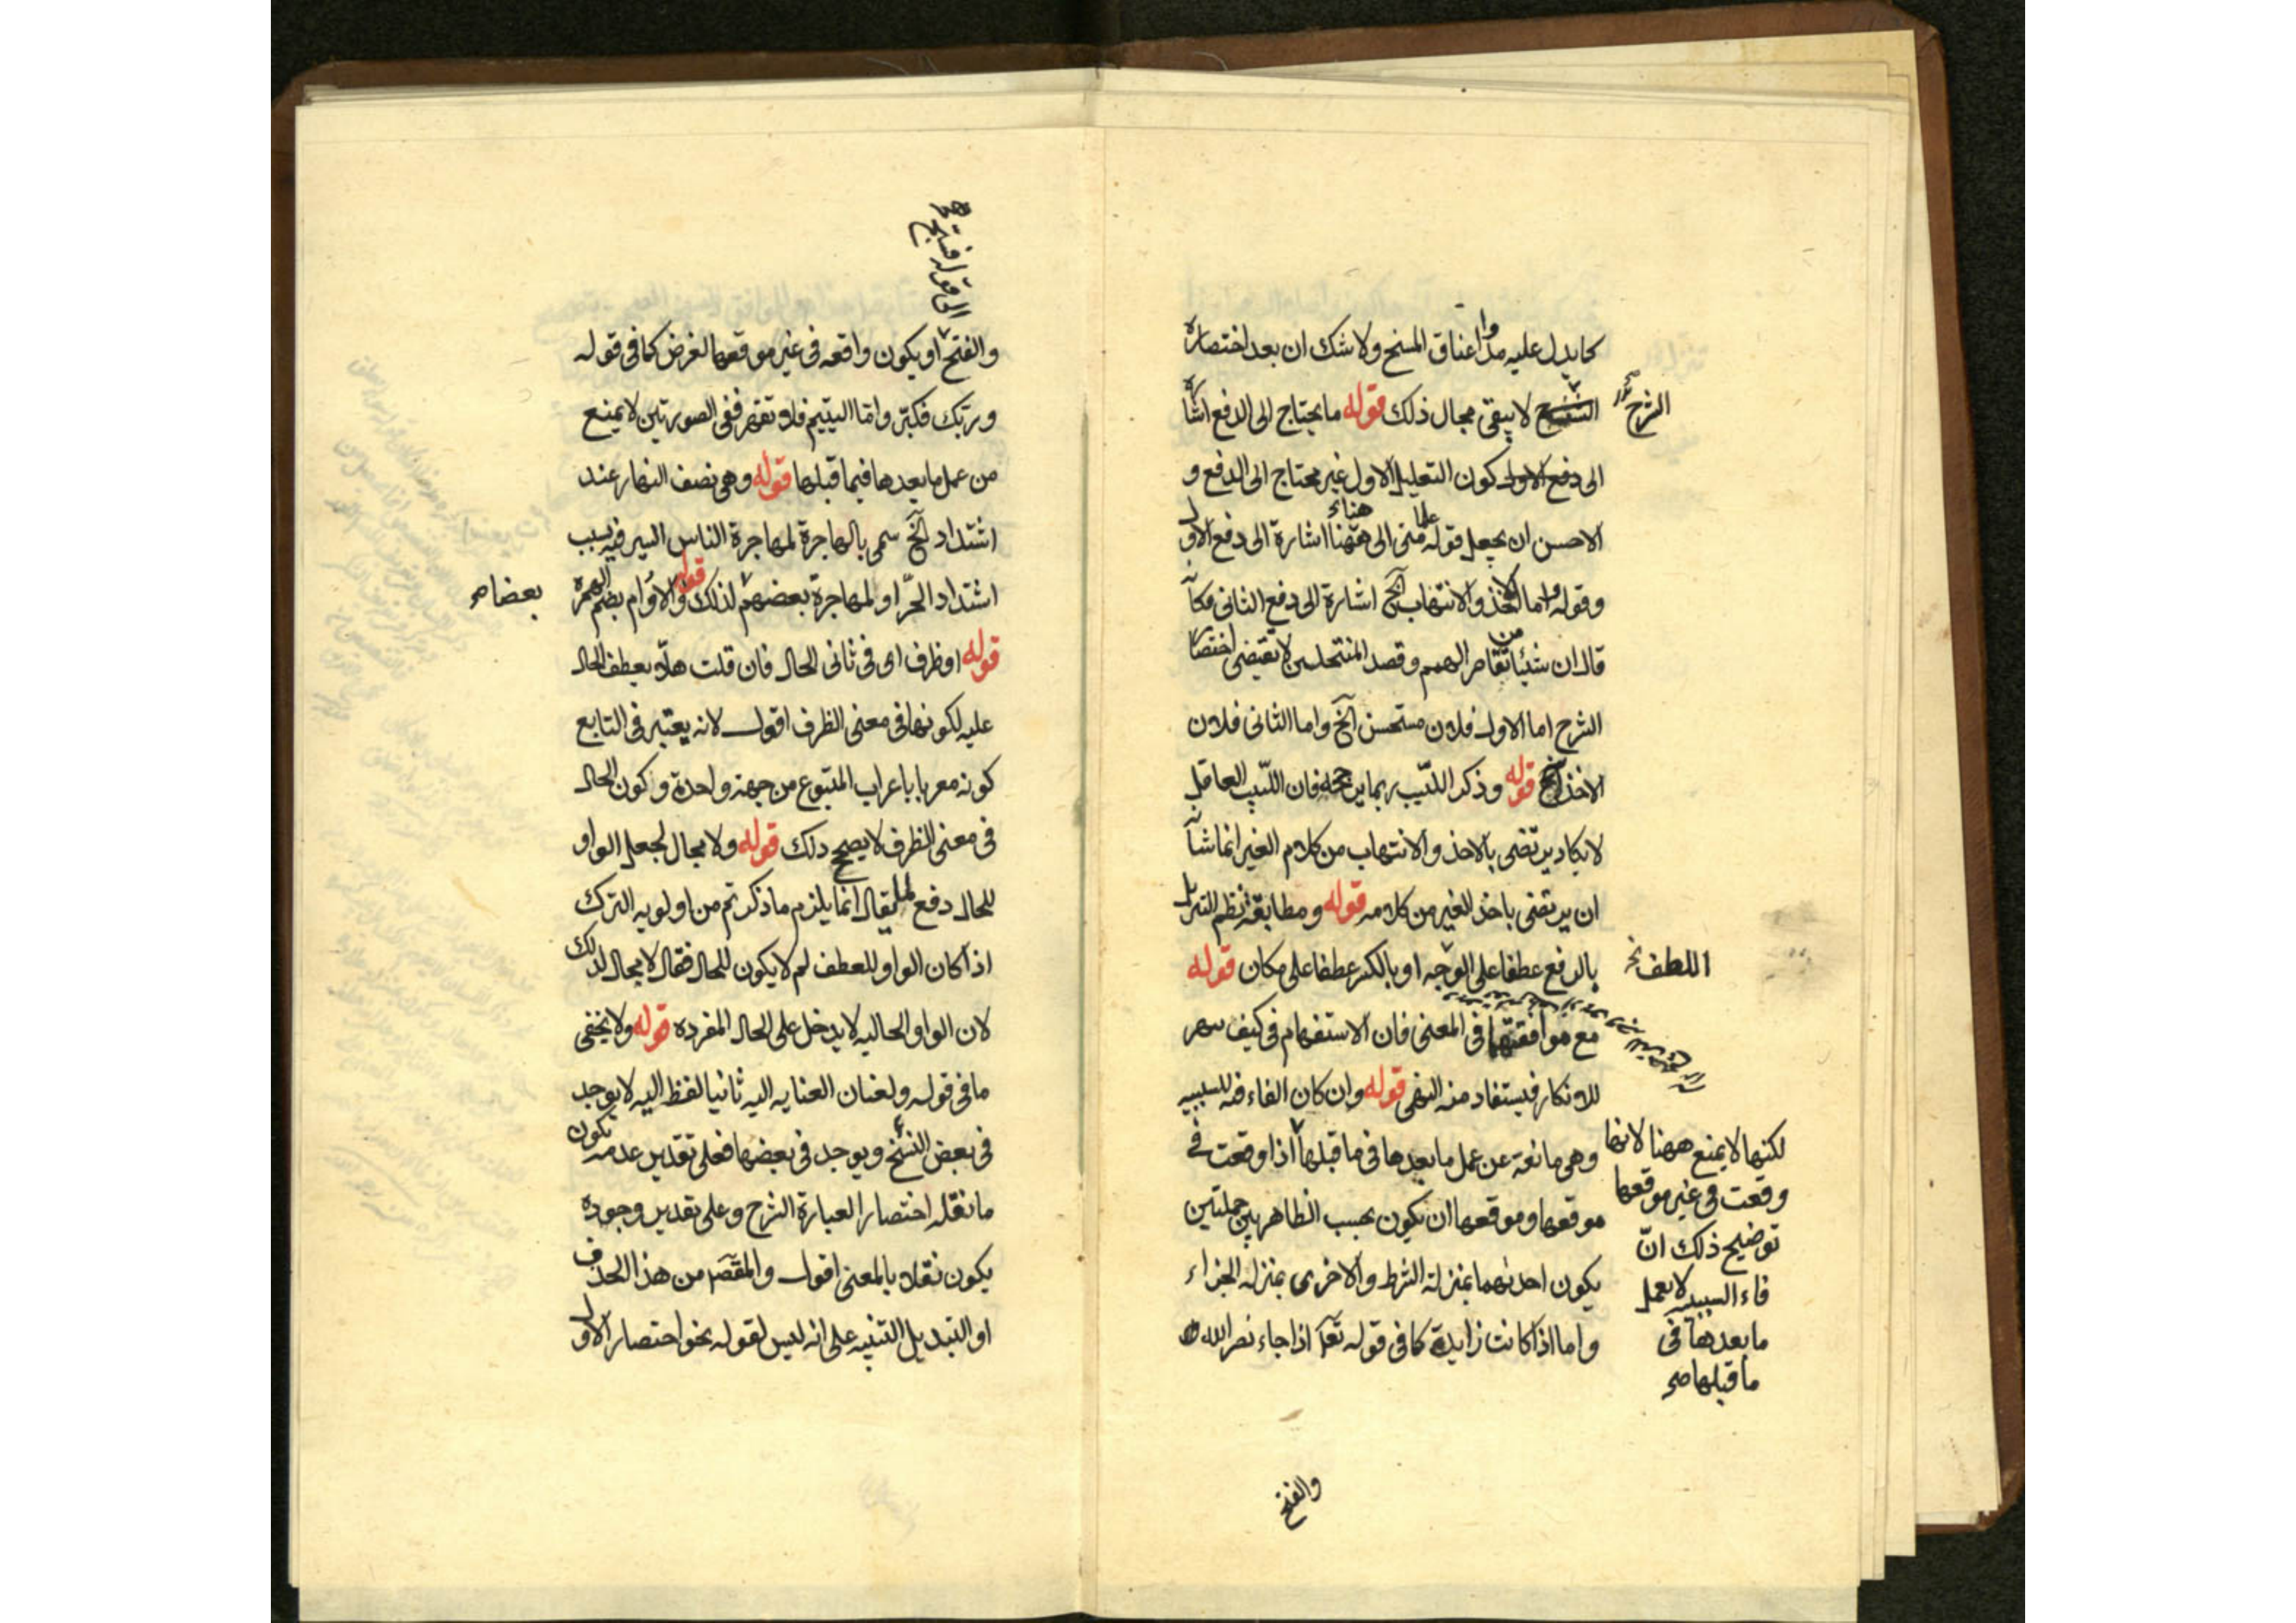 كما يدل عليه مدوا اعناق المسخ ولا شك ان بعد اختصاره
الشرح
لا يبقى مجال ذلك قوله ما يحتاج الى الدفع اشارة
الى دفع الاول كون التعليل الاول غير محتاج الى الدفع و
الاحسن ان يجعل قوله متى الى ههنا اشارة الى دفع الاول
وقوله واما الاخذ والانتهاب الخ اشارة الى دفع الثاني فكانه
قال ان شيئا من تقاصر الهمم وقصد المنتحلين لا تقتضي اختصار
الشرح اما الاول فلان مستحسن الخ واما الثاني فلان
الاخذ الخ قوله وذكر اللبيب ربما يرجحه فان اللبيب العاقل
لا يكاد يرتضي بالاخذ والانتهاب من كلام الغير انما شانه
ان يرتضى باخذ الغير من كلامه قوله ومطابقة نظم التنزيل
بالرفع عطفا على الوجه او بالكسر عطفا على مكان قوله
اللطف نخ
مع موافقتها في المعنى فان الاستفهام في كيف سهر
للانكار فيستفاد منه النهى قوله وان كان الفاء فيه للسببيه
وهي مانعة عن عمل ما بعدها في ما قبلها اذا وقعت في
لكنها لا يمنع ههنا لانها
وقعت في غير موقعها
توضيح ذلك انّ
فاء السببيه لا يعمل
ما بعدها في
ما قبلها صح
موقعها وموقعها ان يكون بحسب الظاهر بين جملتين
يكون احديهما بمنزلة الشرط والاخرى بمنزله الجزاء
واما اذا كانت زايدة كما في قوله تعالى اذا جاء نصر الله
والفتح
الى قوله فسبح
والفتح او يكون واقعه في غير موقعها لغرض كما في قوله
وربّك فكبّر واما اليتيم فلا تقهر ففي الصورتين لا يمنع
من عمل ما بعدها فيما قبلها قوله وهي نصف النهار عند
اشتداد الخ سمى بالهاجرة لمهاجرة الناس السير فيه بسبب
اشتداد الحرّ او لمهاجرة بعضهم لذلك قوله والاوام بضم الهمزة
بعضا صح
قوله او ظرف اى في ثاني الحال فان قلت هلّا يعطف الحال
عليه لكونها في معنى الظرف اقول لانه يعتبر في التابع
كونه معربا باعراب المتبوع من جهة واحدة وكون الحال
في معنى الظرف لا يصحح ذلك قوله ولا مجال لجعل الواو
للحال دفع لما يقال انما يلزم ما ذكرتم من اولويه الترك
اذا كان الواو للعطف لم لا يكون للحال فقال لا مجال لذلك
لان الواو الحاليه لا يدخل على الحال المفرده قوله ولا يخفى
ما في قوله ولعنان العنايه اليه ثانيا لفظ اليه لا يوجد
في بعض النسخ ويوجد في بعضها فعلى تقدير عدمه يكون
ما نقله اختصارا لعبارة الشرح وعلى تقدير وجوده
يكون نقلا بالمعنى اقول والمقصد من هذا الحذف
او التبديل التنبيه على انه ليس لقوله نحو اختصار الاول